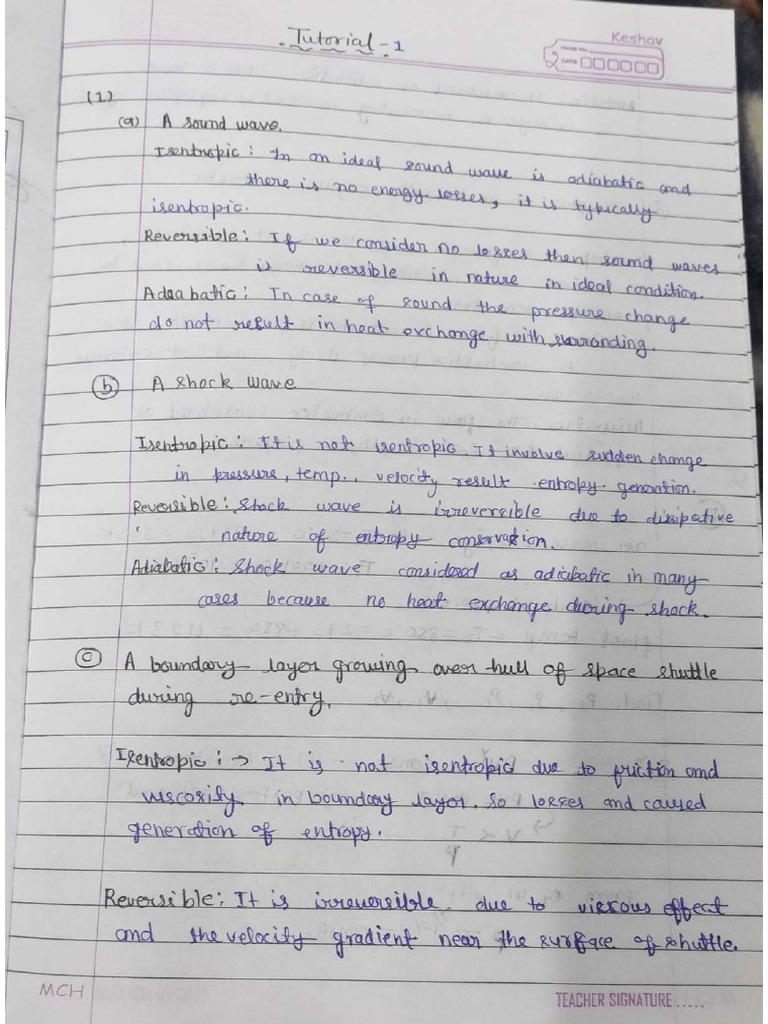 Tutorial - 1
Keshav
PAGE No.
DATE
(1)
(a) A sound wave.
Isentropic : In an ideal sound wave is adiabatic and
there is no energy losses, it is typically
isentropic.
Reversible : If we consider no losses then sound waves
is reversible in nature in ideal condition.
Adaabatic : In case of sound the pressure change
do not result in heat exchange with surranding.
(b) A shock wave
Isentropic : It is not isentropic. It involve sudden change
in pressure, temp., velocity result entropy generation.
Reversible : Shock wave is irreversible due to dissipative
nature of entropy conservation.
Adiabatic : Shock wave considered as adiabatic in many
cases because no heat exchange during shock.
(c) A boundary layer growing over hull of space shuttle
during re-entry.
Isentropic : → It is not isentropic due to friction and
viscosity in boundary layer. So losses and caused
generation of entropy.
Reversible : It is irreversible due to viscous effect
and the velocity gradient near the surface of shuttle.
MCH
TEACHER SIGNATURE .....